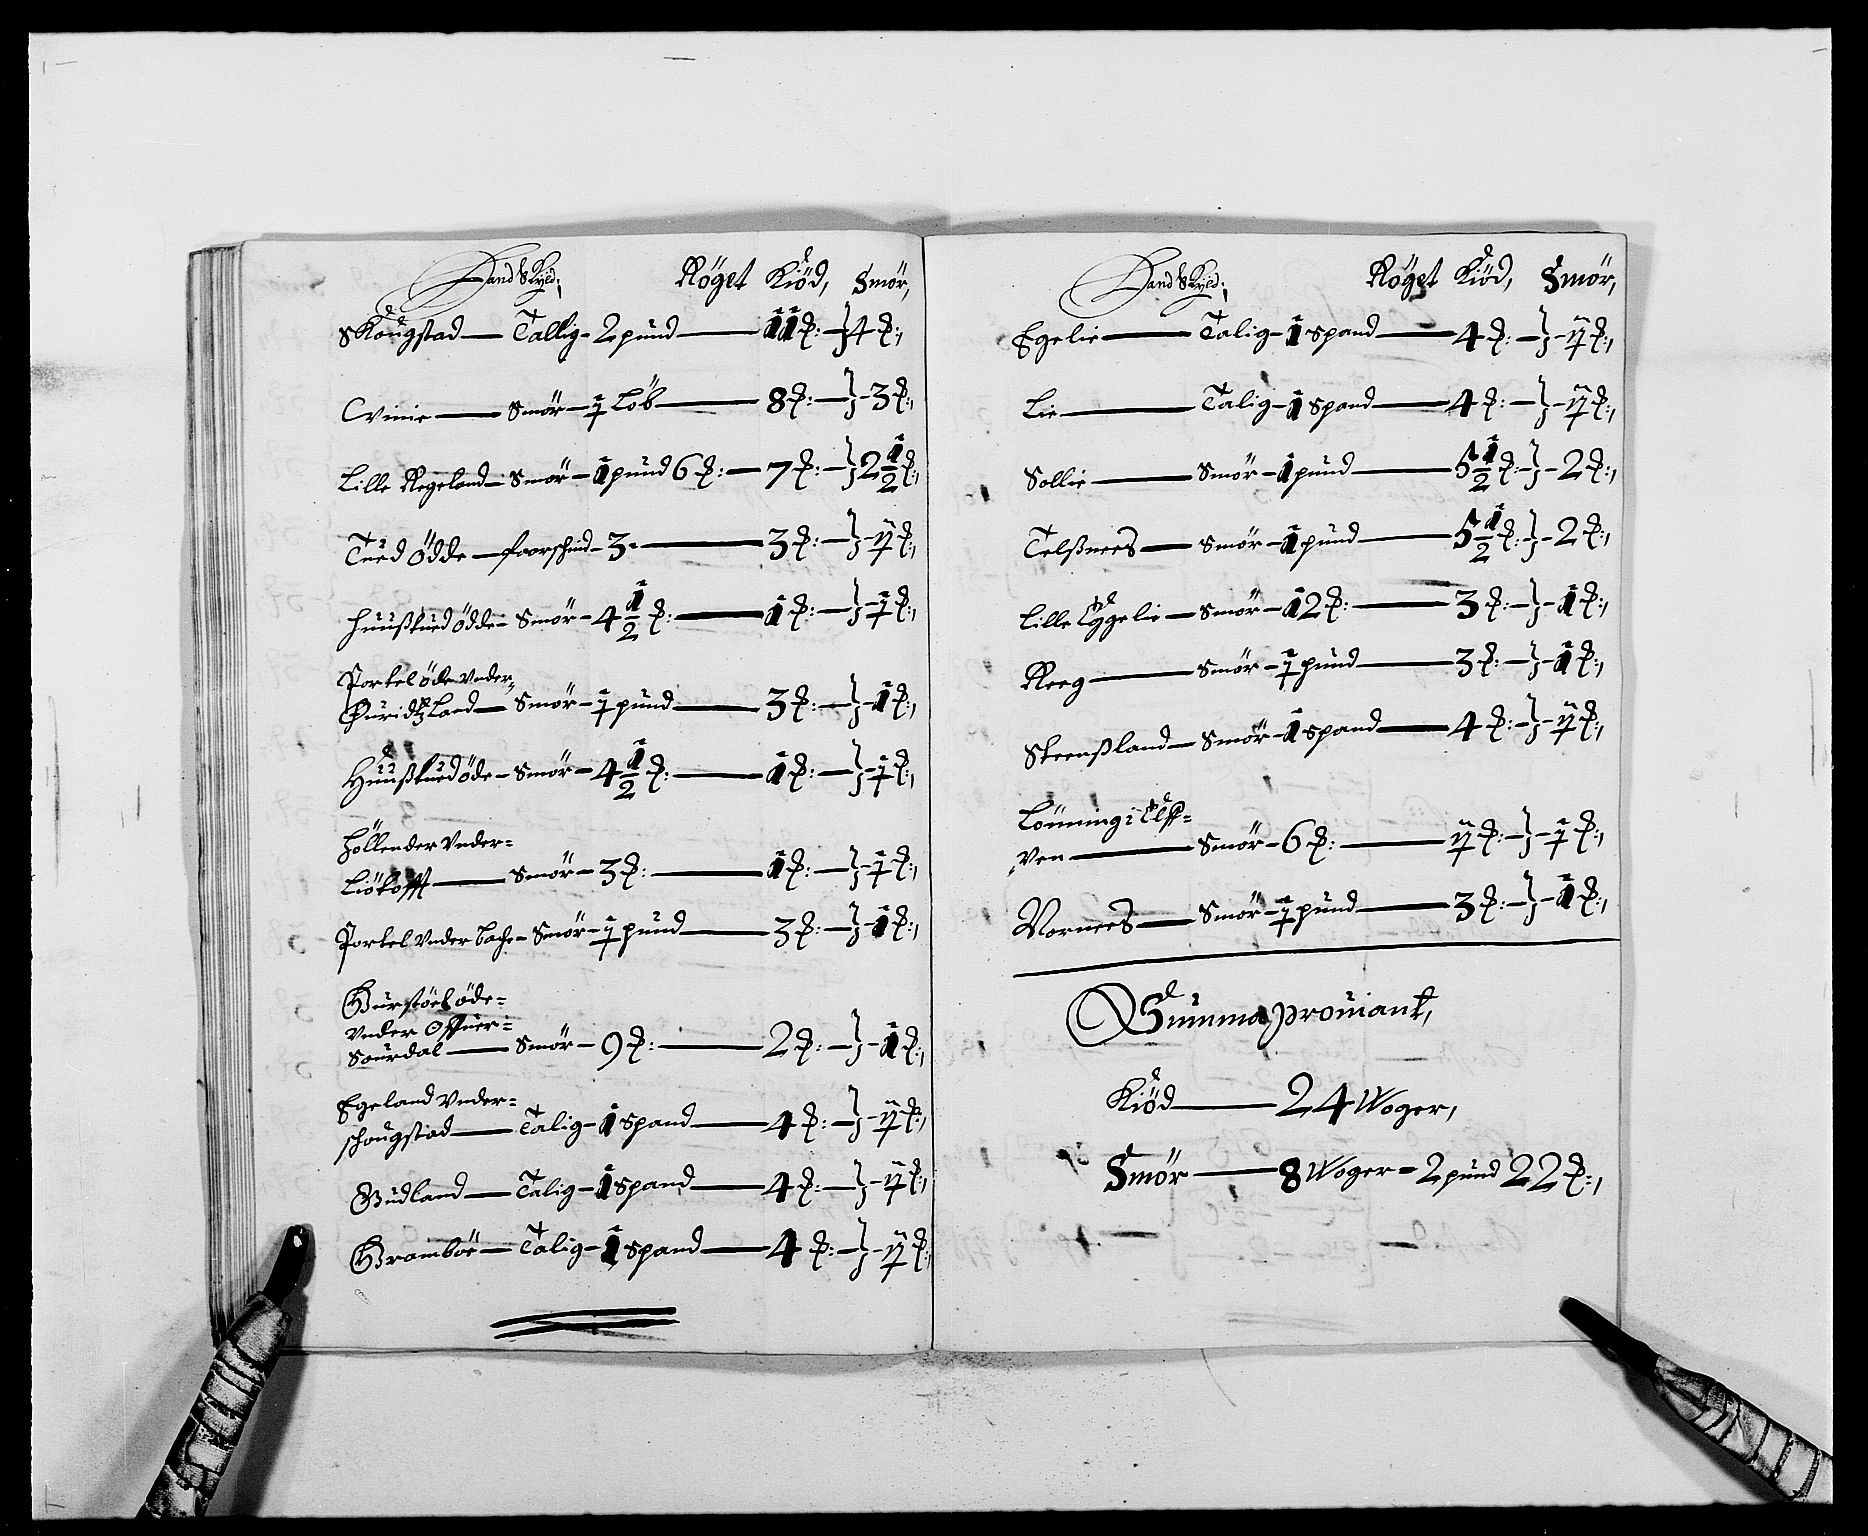 Land Skyld; Röget Kiöd, Smör,
Skougstad — Tallig - 2 pund — 11 ℔: — } 4 ℔:,
Cvinie — Smör — ½ Löb — 8 ℔: — } - 3 ℔:,
Lille Regeland — Smör — 1 pund 6 ℔: — 7 ℔: — } 2½ ℔:,
Tued Ödde — faarschind - 3 — 3 ℔: — } - 1½ ℔:,
Huuskued Ödde — Smör — 4½ ℔: — 1 ℔: — } - ½ ℔:,
Torkel öde Vnder,
Land — Smör — ½ pund — 3 ℔: — } - 1 ℔:,
Huuskued öde — Smör — 4½ ℔: — 1 ℔: — } - ½ ℔:,
Höllender Vnder=
Liökofft — Smör — 3 ℔: — 1 ℔: — } - ½ ℔:,
Torkel Vnder — Smör — ½ pund — 3 ℔: — } - 1 ℔:,
Gurstöel öde=
Vnder Offuer=
Sourdal — Smör — 9 ℔: — 2 ℔: — } - 1 ℔:,
Egeland Vnder=
schougstad — Talig — 1 spand — 4 ℔: — } - 1½ ℔:,
Gudland — Talig — 1 spand — 4 ℔: — } - 1½ ℔:,
Gramboe — Talig — 1 spand — 4 ℔: — } - 1½ ℔:,
Land Skyld; Röget Kiöd, Smör,
Egelie — Talig — 1 spand — 4 ℔: — } - 1½ ℔:,
Lie — Talig — 1 spand — 4 ℔: — } - 1½ ℔:,
Sollie — Smör — 1 pund — 5½ ℔: — } - 2 ℔:,
Telßnees — Smör — 1 pund — 5½ ℔: — } - 2 ℔:,
Lille Eggelie — Smör — 12 ℔: — 3 ℔: — } - 1 ℔:,
Reeg — Smör — ½ pund — 3 ℔: — } - 1 ℔:,
Steenßland — Smör — 1 spand — 4 ℔: — } - 1½ ℔:,
Lönning i Elff=
Ven — Smör — 6 ℔: — 1½ ℔: — } - ½ ℔:,
Vornees — Smör — ½ pund — 3 ℔: — } - 1 ℔:,
Summa prouiant,
Kiöd — 24 Woger,
Smör — 8 Woger — 2 pund 22 ℔:,